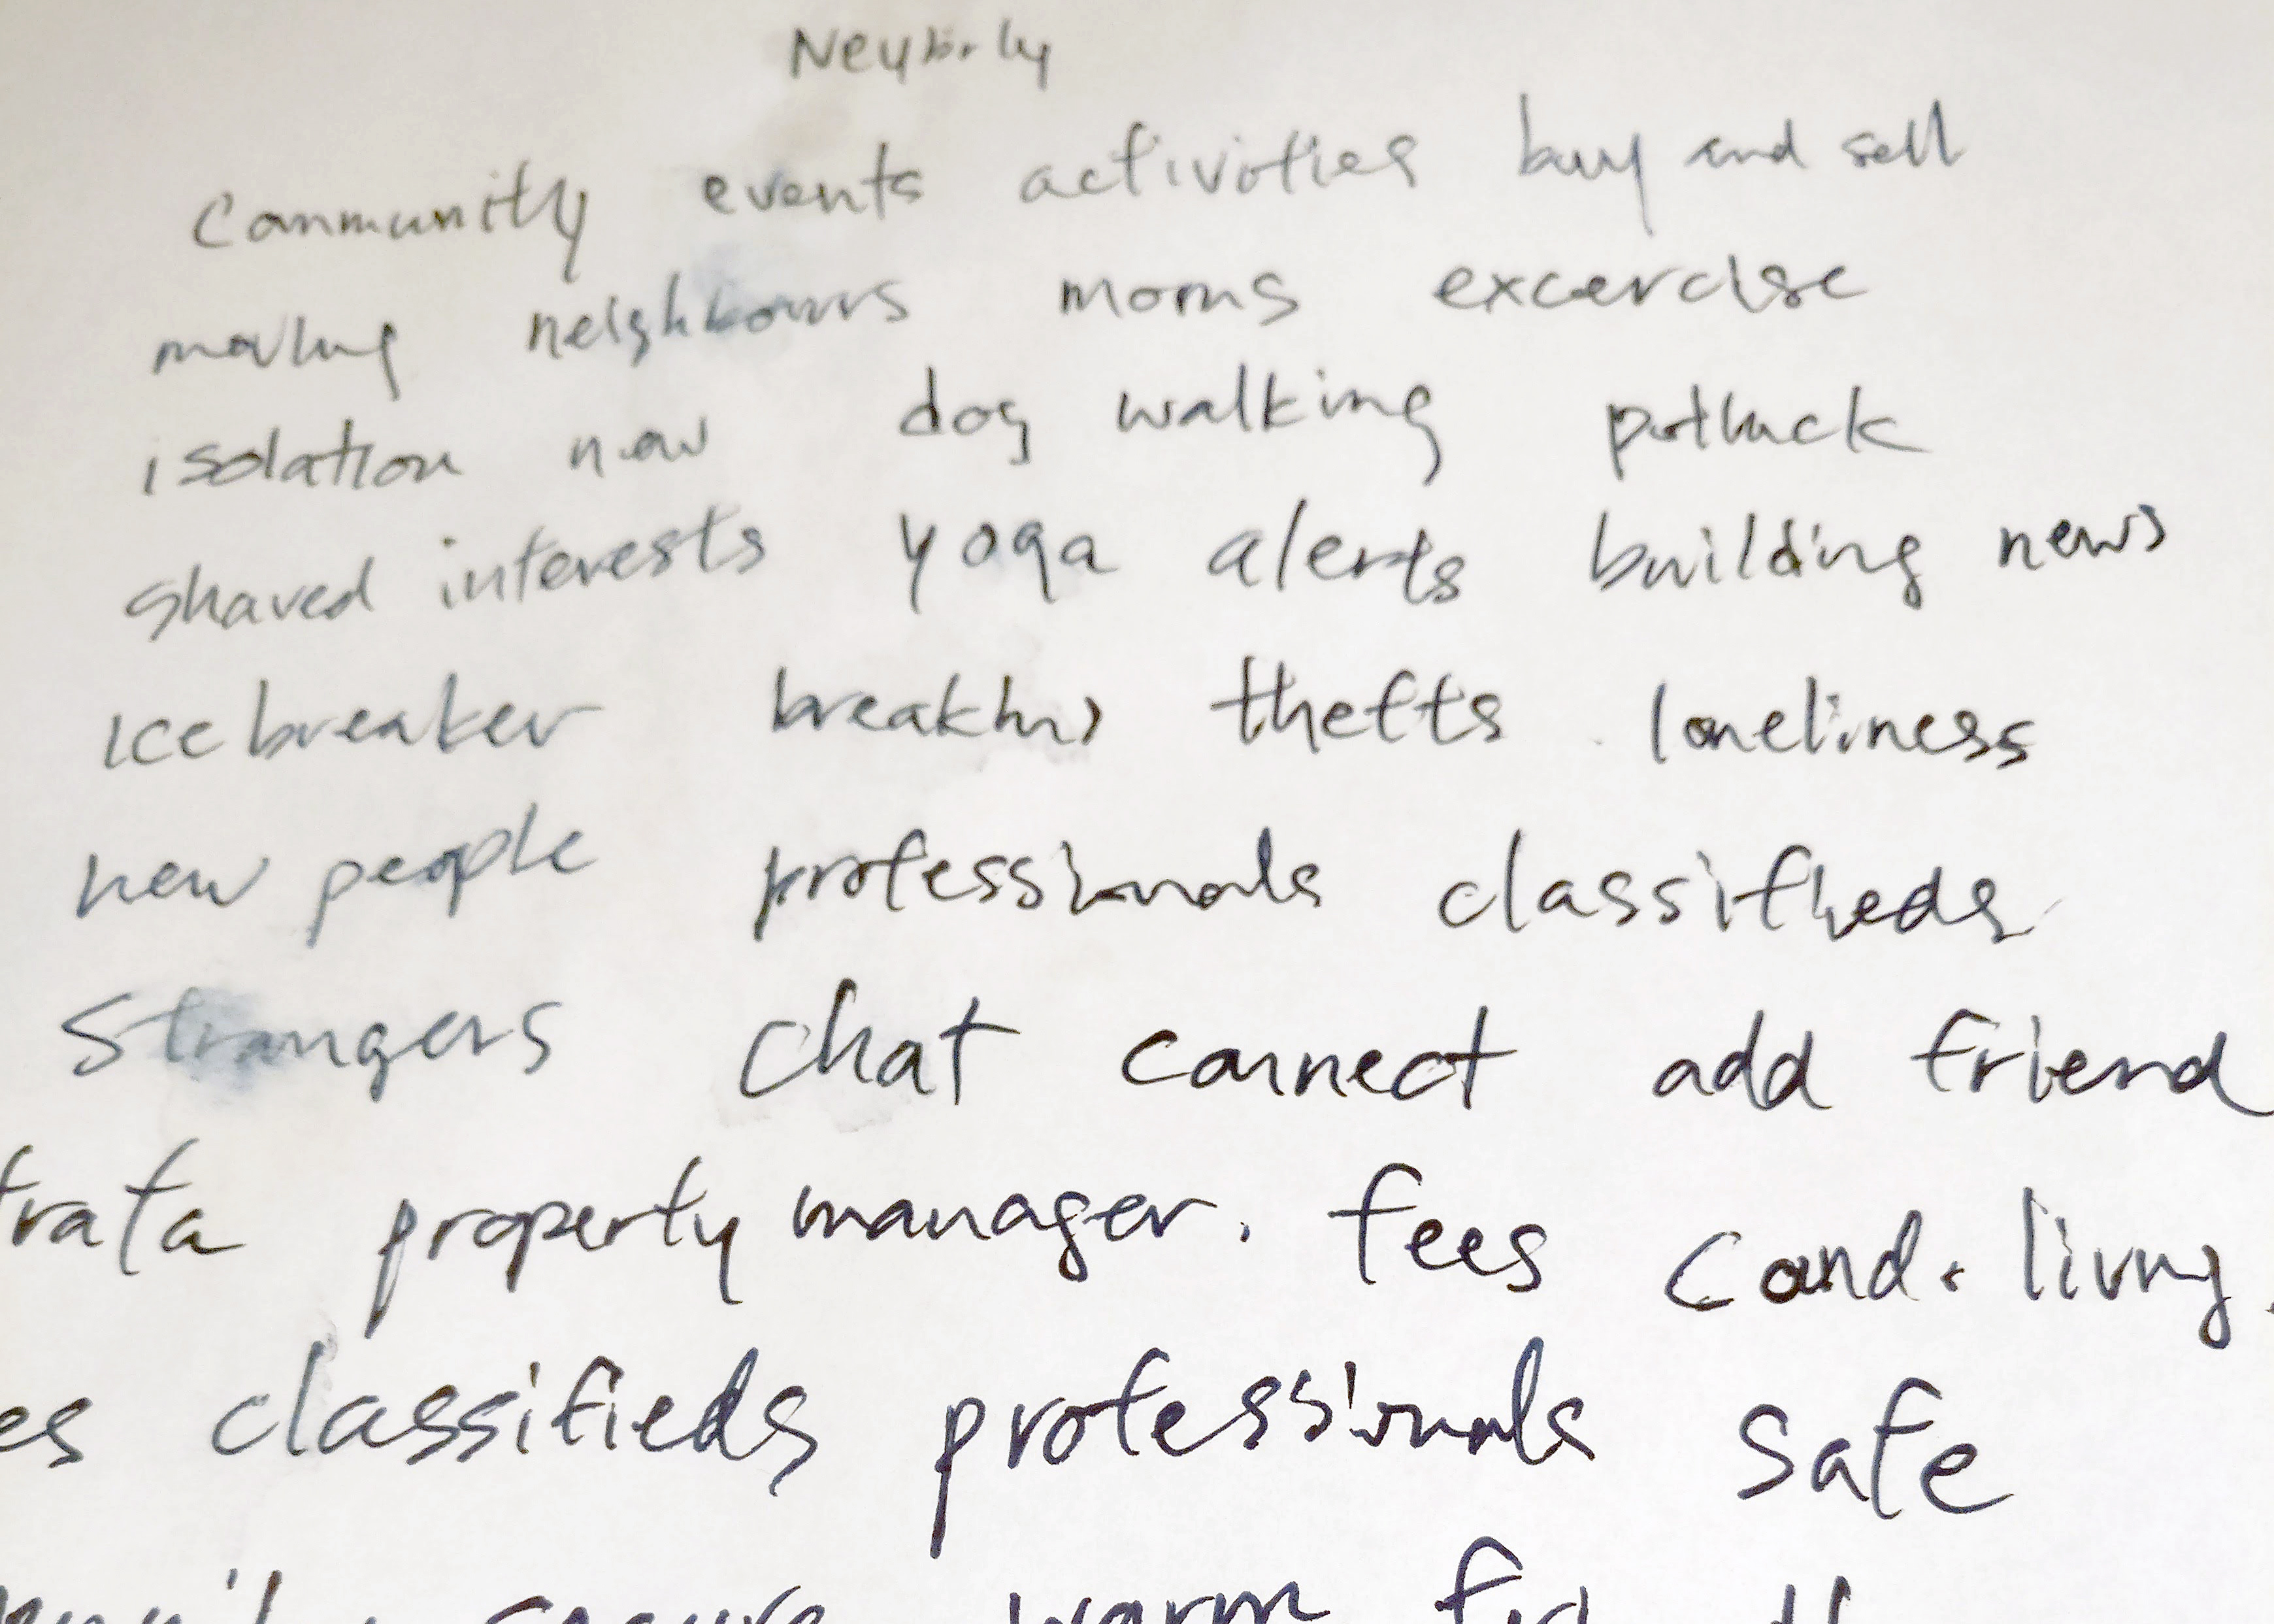 Neyborly
Community events activities buy and sell
moving neighbours moms excercise
isolation new dog walking potluck
shared interests yoga alerts building news
Icebreaker breakins thefts loneliness
new people professionals classifieds
Strangers chat connect add friend
trata property manager. fees condo living.
es classifieds professionals safe
secure warm